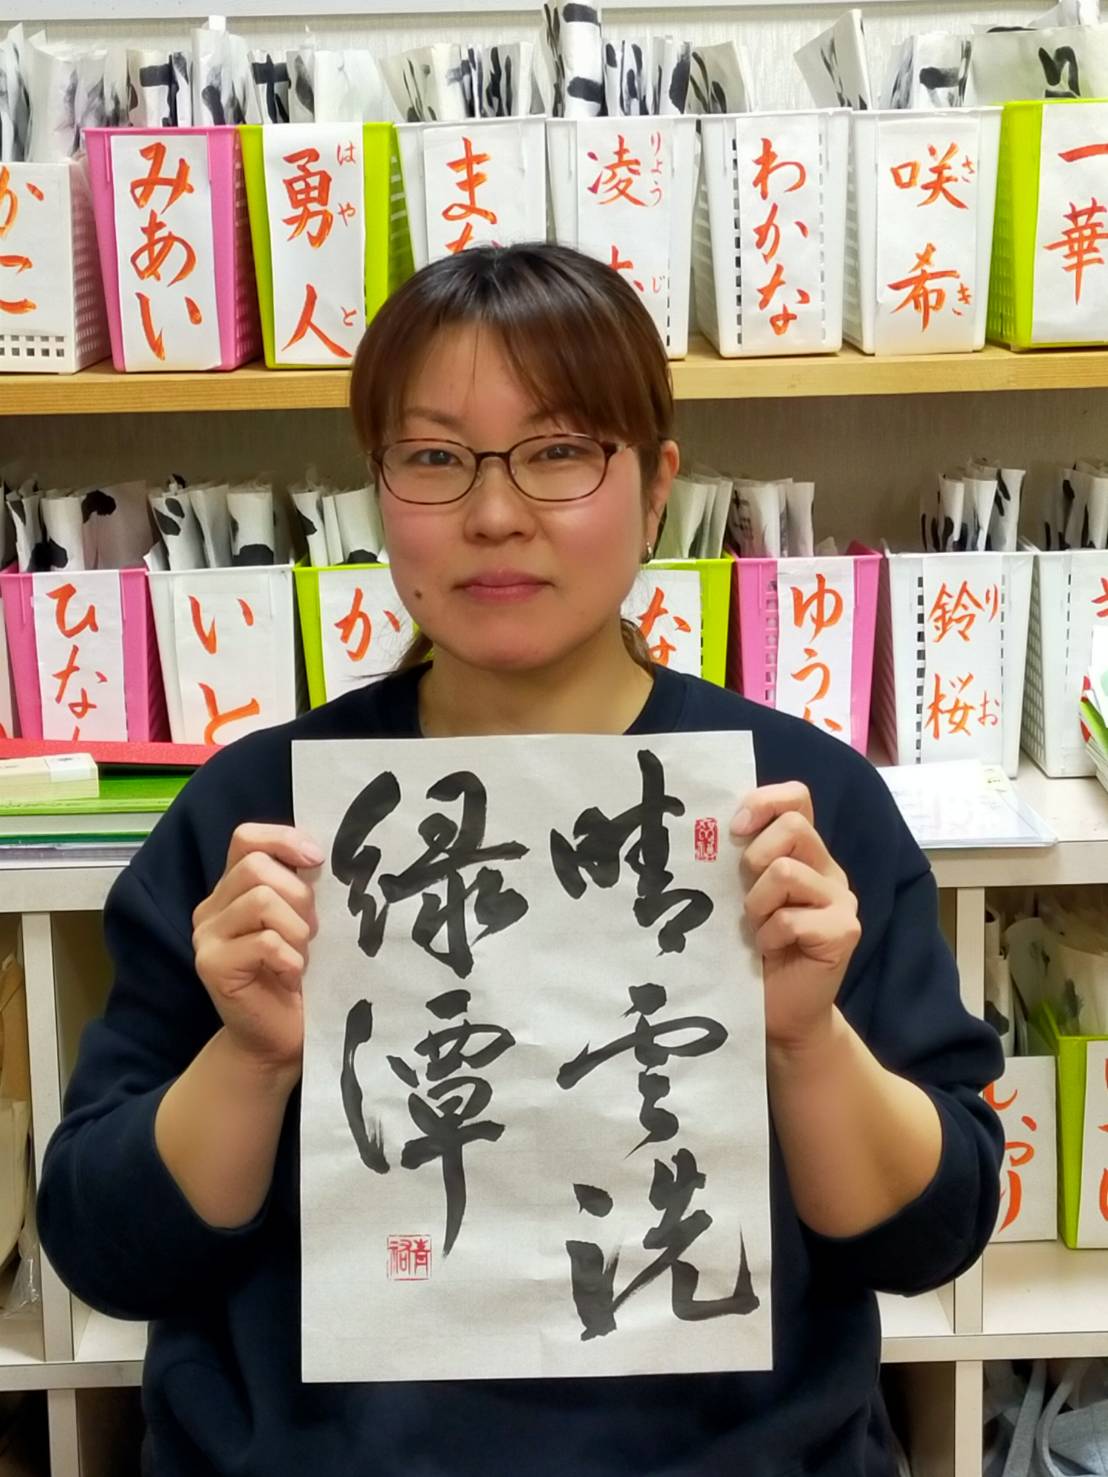 みあい
勇人
はやと
ま
凌
りょう
じ
わかな
咲希
さき
一華
ひな
いと
か
な
ゆうか
鈴桜
りお
晴雲洗
緑潭